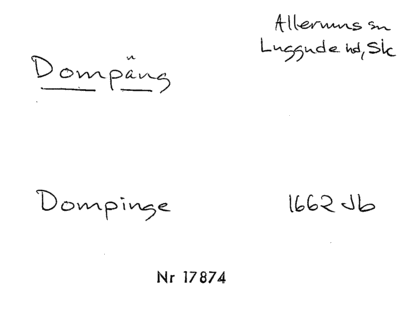 Allerums sn
Luggude hd, Sk
Dompäng
Dompinge 1662 Jb
Nr 17874